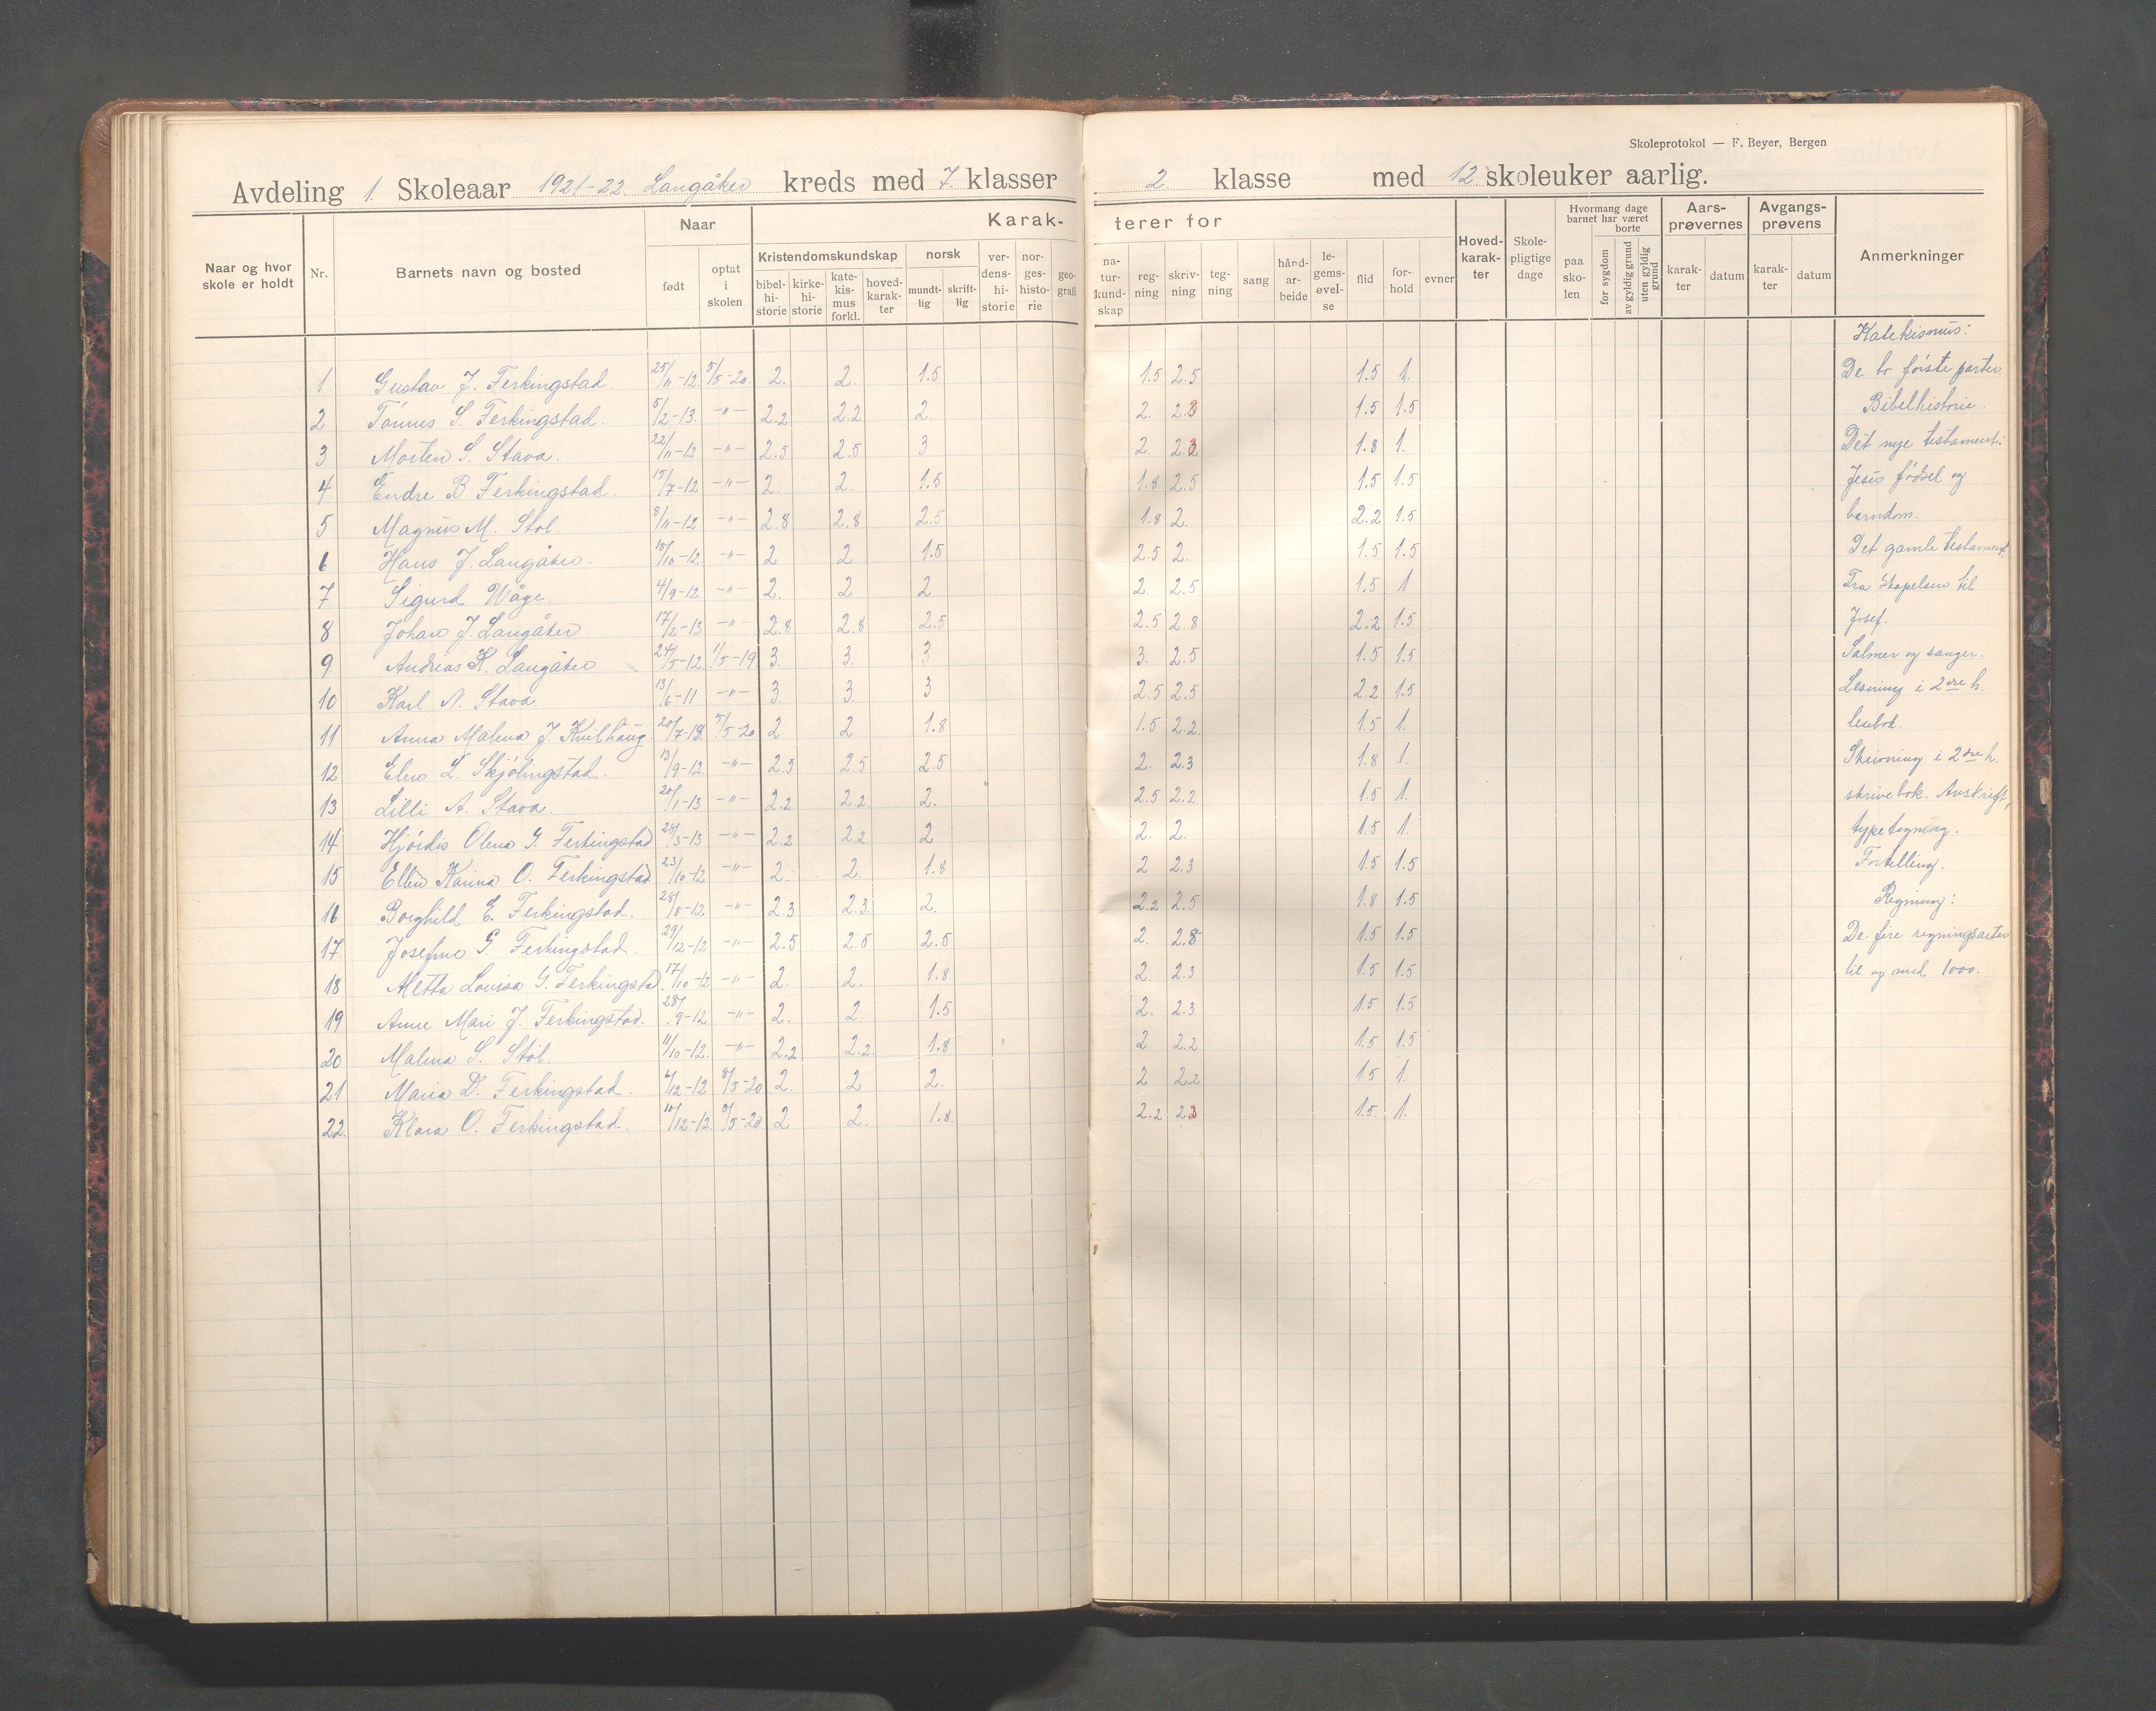 Skoleprotokol — F. Beyer, Bergen
Avdeling 1. Skoleaar 1921-22 Langåker kreds med 7. klasser 2 klasse med 12 skoleuker aarlig.
Naar og hvor skole er holdt | Nr. | Barnets navn og bosted | Naar | født | optat i skolen | Karakterer for | Kristendomskundskap | bibelhistorie | kirkehistorie | katekismus forkl. | hovedkarakter | norsk | mundtlig | skriftlig | verdenshistorie | norgeshistorie | geografi | naturkundskap | regning | skrivning | tegning | sang | håndarbeide | legemsøvelse | flid | forhold | evner | Hovedkarakter | Skolepligtige dage | Hvormang dage barnet har været | paa skolen | borte | for sygdom | av gyldig grund | uten gyldig grund | Aarsprøvernes | karakter | datum | Avgangsprøvens | karakter | datum | Anmerkninger
Katekismus:
1 Gustav J. Ferkingstad. 25/11-12. 5/5-20. 2. 2. 1.5 1.5 2.5 1.5 1. De to første parter.
2 Tønnes S. Ferkingstad. 5/2-13. -"- 2.2 2.2 2. 2. 2.3 1.5 1.5 Bibelhistorie.
3 Morten S. Stava. 22/11-12 -"- 2.5 2.5 3 2. 1.8 1. Det nye testament:
4 Endre B Ferkingstad. 15/7-12 -"- 2. 2. 1.5 1.8 2.5 1.5 1.5 Jesu fødsel og
5 Magnus M. Stol. 8/11-12 -"- 2.8 2.8 2.5 1.8 2. 2.2 1.5 barndom.
6 Hans J. Langåker. 15/10-12. -"- 2 2 1.5 2.5 2. 1.5 1.5 Det gamle testament.
7 Sigurd Våge. 4/9-12. -"- 2. 2 2 2. 2.5 1.5 1 Fra Skapelsen til
8 Johan J. Langåker 17/2-13 -"- 2.8 2.8 2.5 2.5 2.8 2.2 1.5 Josef.
9 Andreas K. Langåker 24/5-12. 1/5-19. 3. 3. 3 3. 2.5 1.5 1.5 Salmer og sanger.
10 Karl N. Stava. 13/6-11 -"- 3. 3. 3 2.5 2.5 2.2 1.5 Lesning i 2dre h.
11 Anna Malena J. Kvilhaug 20/7-12 5/5-20. 2 2 1.8 1.5 2.2. 1.5 1. lesebok.
12 Elen L. Skjølingstad. 13/9-12. -"- 2.5 2.5 2.5 2. 2.3 1.8 1. Skrivning i 2dre h.
13 Lilli A. Stava. 20/1-13 -"- 2.2 2.2. 2. 2.5 2.2. 1.5 1. skrivebok. Avskrift,
14 Hjørdis Olena G. Ferkingstad 28/3-13 -"- 2.2 2.2. 2 2. 2. 1.5 1. typetegning.
15 Ellen Karina O. Ferkingstad. 23/10-12 -"- 2. 2. 1.8 2 2.3 1.5 1.5 Fortelling.
16 Borghild E. Ferkingstad. 28/8-12 -"- 2.3 2.3. 2. 2.2 2.5 1.8 1.5 Regning:
17 Josefine G. Ferkingstad. 29/12-12 -"- 2.5 2.5 2.5 2. 2.8 1.5 1.5 De fire regningsarter
18 Metta Lovisa G. Ferkingstad. 17/10-12 -"- 2. 2. 1.8 2. 2.3 1.5 1.5 til og med 1000.
19 Anne Mari J. Ferkingstad. 28/9-12 -"- 2. 2. 1.5 2. 2.3 1.5 1.5
20 Malena S. Stol. 11/10-12. -"- 2.2 2.2. 1.8 2 2.2 1.5 1.5
21 Maria D. Ferkingstad. 6/12-12 8/5-20 2. 2 2. 2 2.2 1.5 1.
22. Klara O. Ferkingstad. 10/12-12. 8/5-20 2 2. 1.8. 2.2 2.3 1.5. 1.